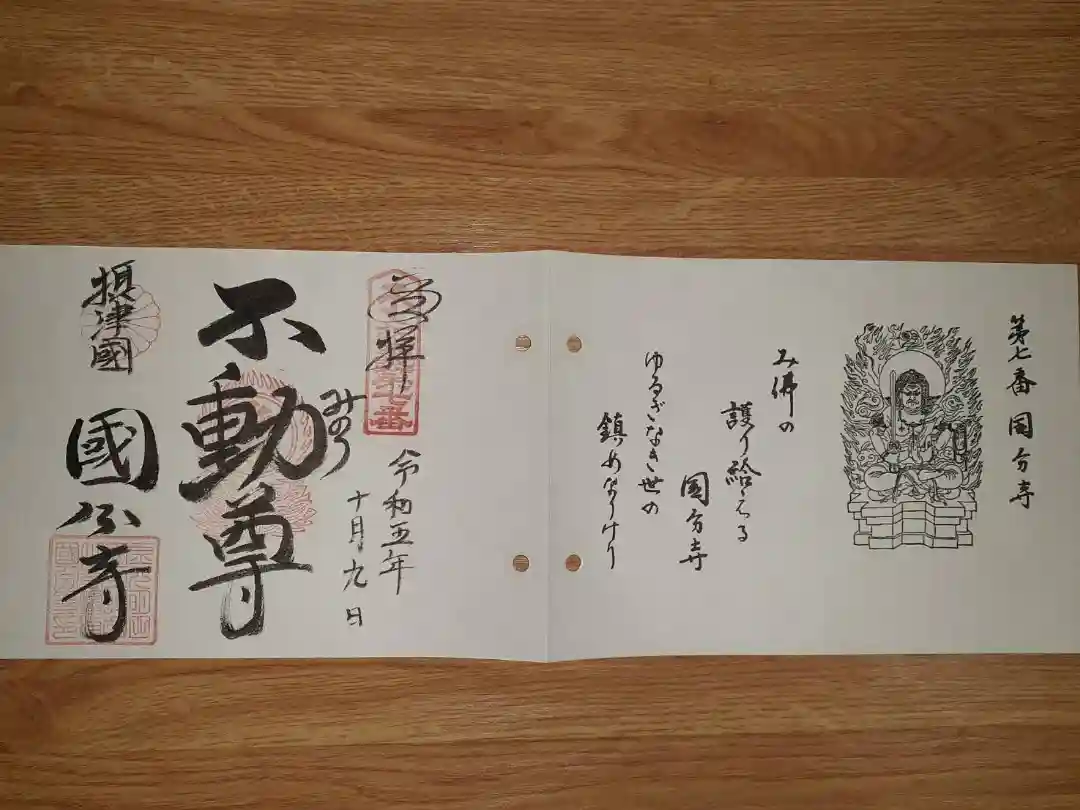 第七番 国分寺
み佛の
護り給へる
国分寺
ゆるぎなき世の
鎮めなりけり
奉拝
第七番
令和五年
十月九日
不動尊
摂津國
國分寺